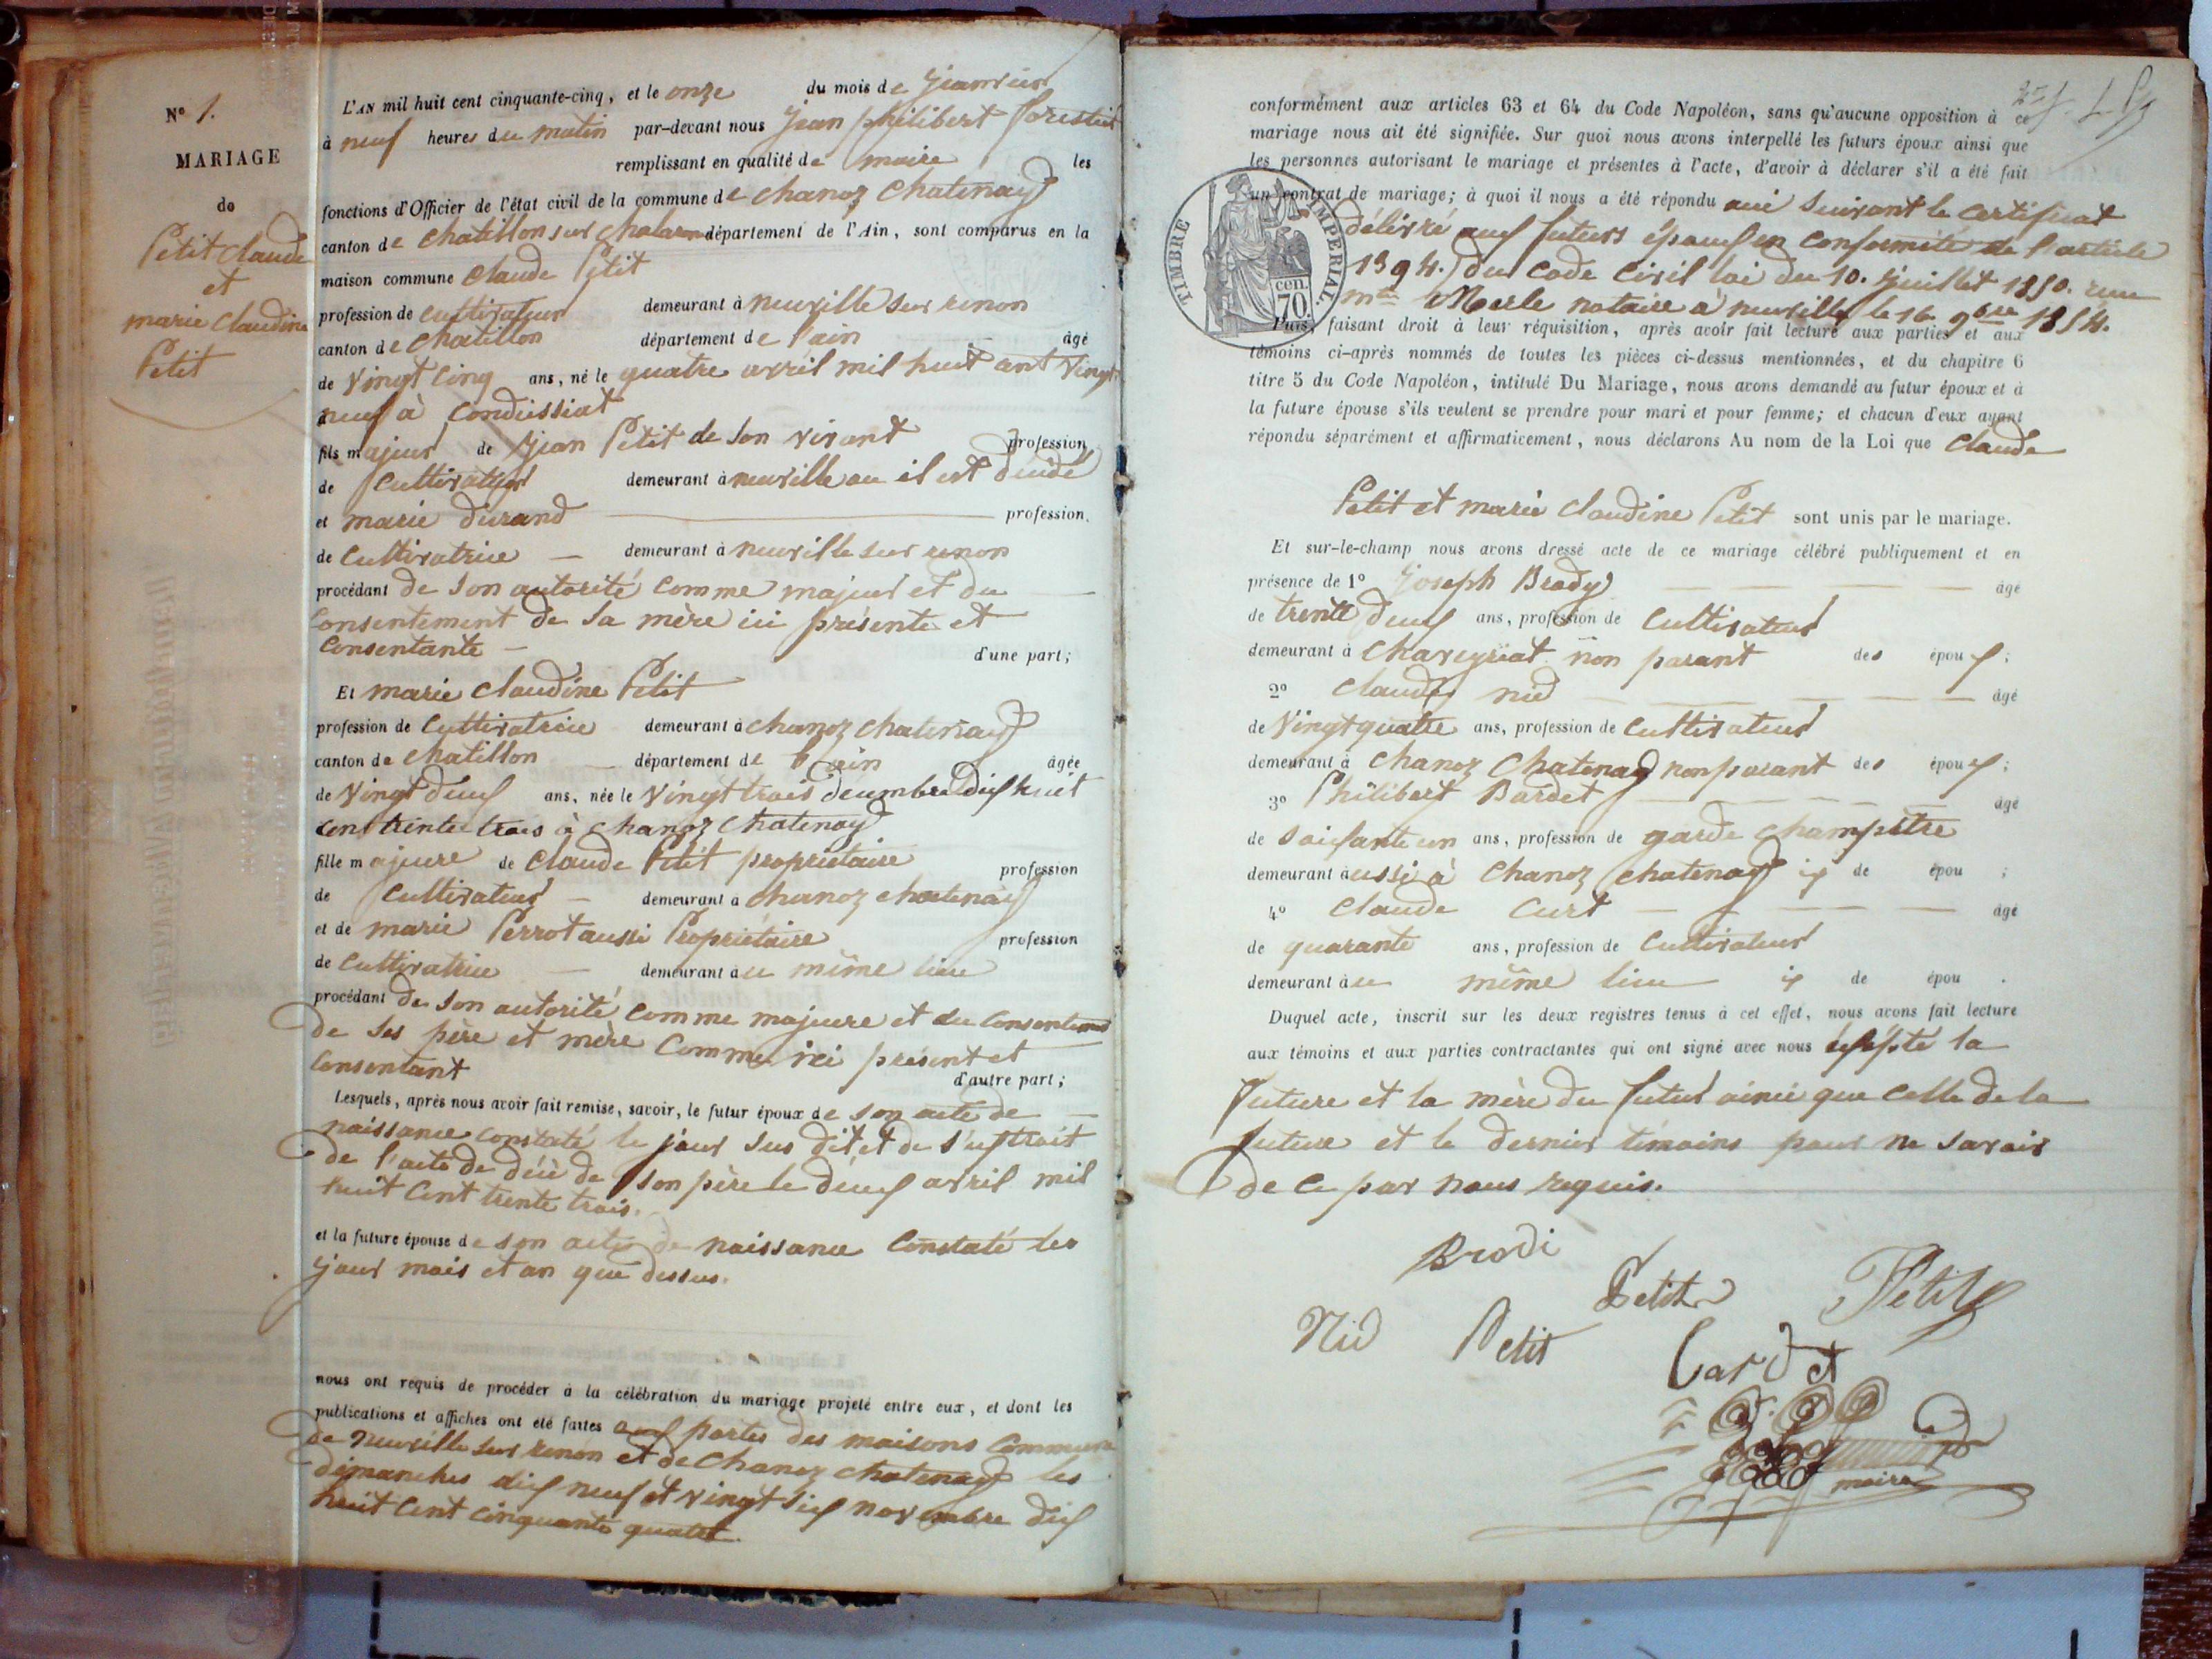 N° 1.
MARIAGE
de
Petit Claude
et
marie Claudine
Petit
L'AN mil huit cent cinquante-cinq, et le onze du mois de Janvier
à neuf heures du matin par-devant nous Jean philibert forestier
remplissant en qualité de maire les
fonctions d'Officier de l'état civil de la commune de chanoz Chatenay
canton de Chatillon sur Chalaronne département de l'Ain, sont comparus en la
maison commune Claude Petit
profession de cultivateur demeurant à neuville sur renon
canton de Chatillon département de l'ain âgé
de Vingt Cinq ans, né le quatre avril mil huit cent Vingt
neuf à Condeissiat
fils majeur de Jean Petit de son vivant profession
de Cultivateur demeurant à neuville ou il est décidé
et marie durand profession
de Cultivatrice demeurant à neuville sur renon
procédant de son autorité Comme majeur et du
Consentement de sa mère ici présente et
Consentante d'une part;
Et marie Claudine Petit
profession de Cultivatrice demeurant à chanoz chatenay
canton de Chatillon département de l'ain âgée
de Vingt deux ans, née le Vingt trois decembre dix huit
cent trente trois à Chanoz Chatenay
fille majeure de Claude Petit propriétaire profession
de Cultivateur demeurant à chanoz chatenay
et de marie Perrot aussi Propriétaire profession
de Cultivatrice demeurant au même lieu
procédant de son autorité Comme majeure et du Consentement
de ses père et mère Comme ici présent et
Consentant d'autre part;
Lesquels, après nous avoir fait remise, savoir, le futur époux de son acte de
naissance Constaté le jour sus dit et de l'extrait
de l'acte de décè de son père le deux avril mil
huit Cent trente trois.
et la future épouse de son acte de naissance Constaté les
jour mois et an que dessus.
nous ont requis de procéder à la célébration du mariage projeté entre eux, et dont les
publications et affiches ont été faites aux portes des maisons Commune
de neuville sur renon et de Chanoz chatenay les
dimanches dix neuf et vingt six novembre dix
huit Cent Cinquante quatre.
conformément aux articles 63 et 64 du Code Napoléon, sans qu'aucune opposition à ce
mariage nous ait été signifiée. Sur quoi nous avons interpellé les futurs époux ainsi que
les personnes autorisant le mariage et présentes à l'acte, d'avoir à déclarer s'il a été fait
un contrat de mariage; à quoi il nous a été répondu oui suivant le Certificat
délivré aux futurs époux en Conformité de l'article
1394. du Code Civil loi du 10. Juillet 1850.
Merle notaire à neuville le 16 9bre 1854.
TIMBRE IMPERIAL.
70 cen.
Puis, faisant droit à leur réquisition, après avoir fait lecture aux parties et aux
témoins ci-après nommés de toutes les pièces ci-dessus mentionnées, et du chapitre 6
titre 5 du Code Napoléon, intitulé Du Mariage, nous avons demandé au futur époux et à
la future épouse s'ils veulent se prendre pour mari et pour femme; et chacun d'eux ayant
répondu séparément et affirmativement, nous déclarons Au nom de la Loi que Claude
Petit et marie Claudine Petit sont unis par le mariage.
Et sur-le-champ nous avons dressé acte de ce mariage célébré publiquement et en
présence de 1° Joseph Brody âgé
de trente deux ans, profession de Cultivateur
demeurant à Chaveyriat non parant des époux;
2° Claude nid âgé
de Vingt quatre ans, profession de Cultivateur
demeurant à Chanoz Chatenay non parant des époux;
3° Philibert Bardet âgé
de soixante un ans, profession de garde Champêtre
demeurant aussi à Chanoz Chatenay de épou ;
4° Claude Curt âgé
de quarante ans, profession de Cultivateur
demeurant au même lieu de épou .
Duquel acte, inscrit sur les deux registres tenus à cet effet, nous avons fait lecture
aux témoins et aux parties contractantes qui ont signé avec nous la
future et la mère du futur ainsi que Celle de la
future et le dernier témoins pour ne savoir
de ce par nous requis.
Brodi
Petit Petit
Nid Petit
Bardet
maire